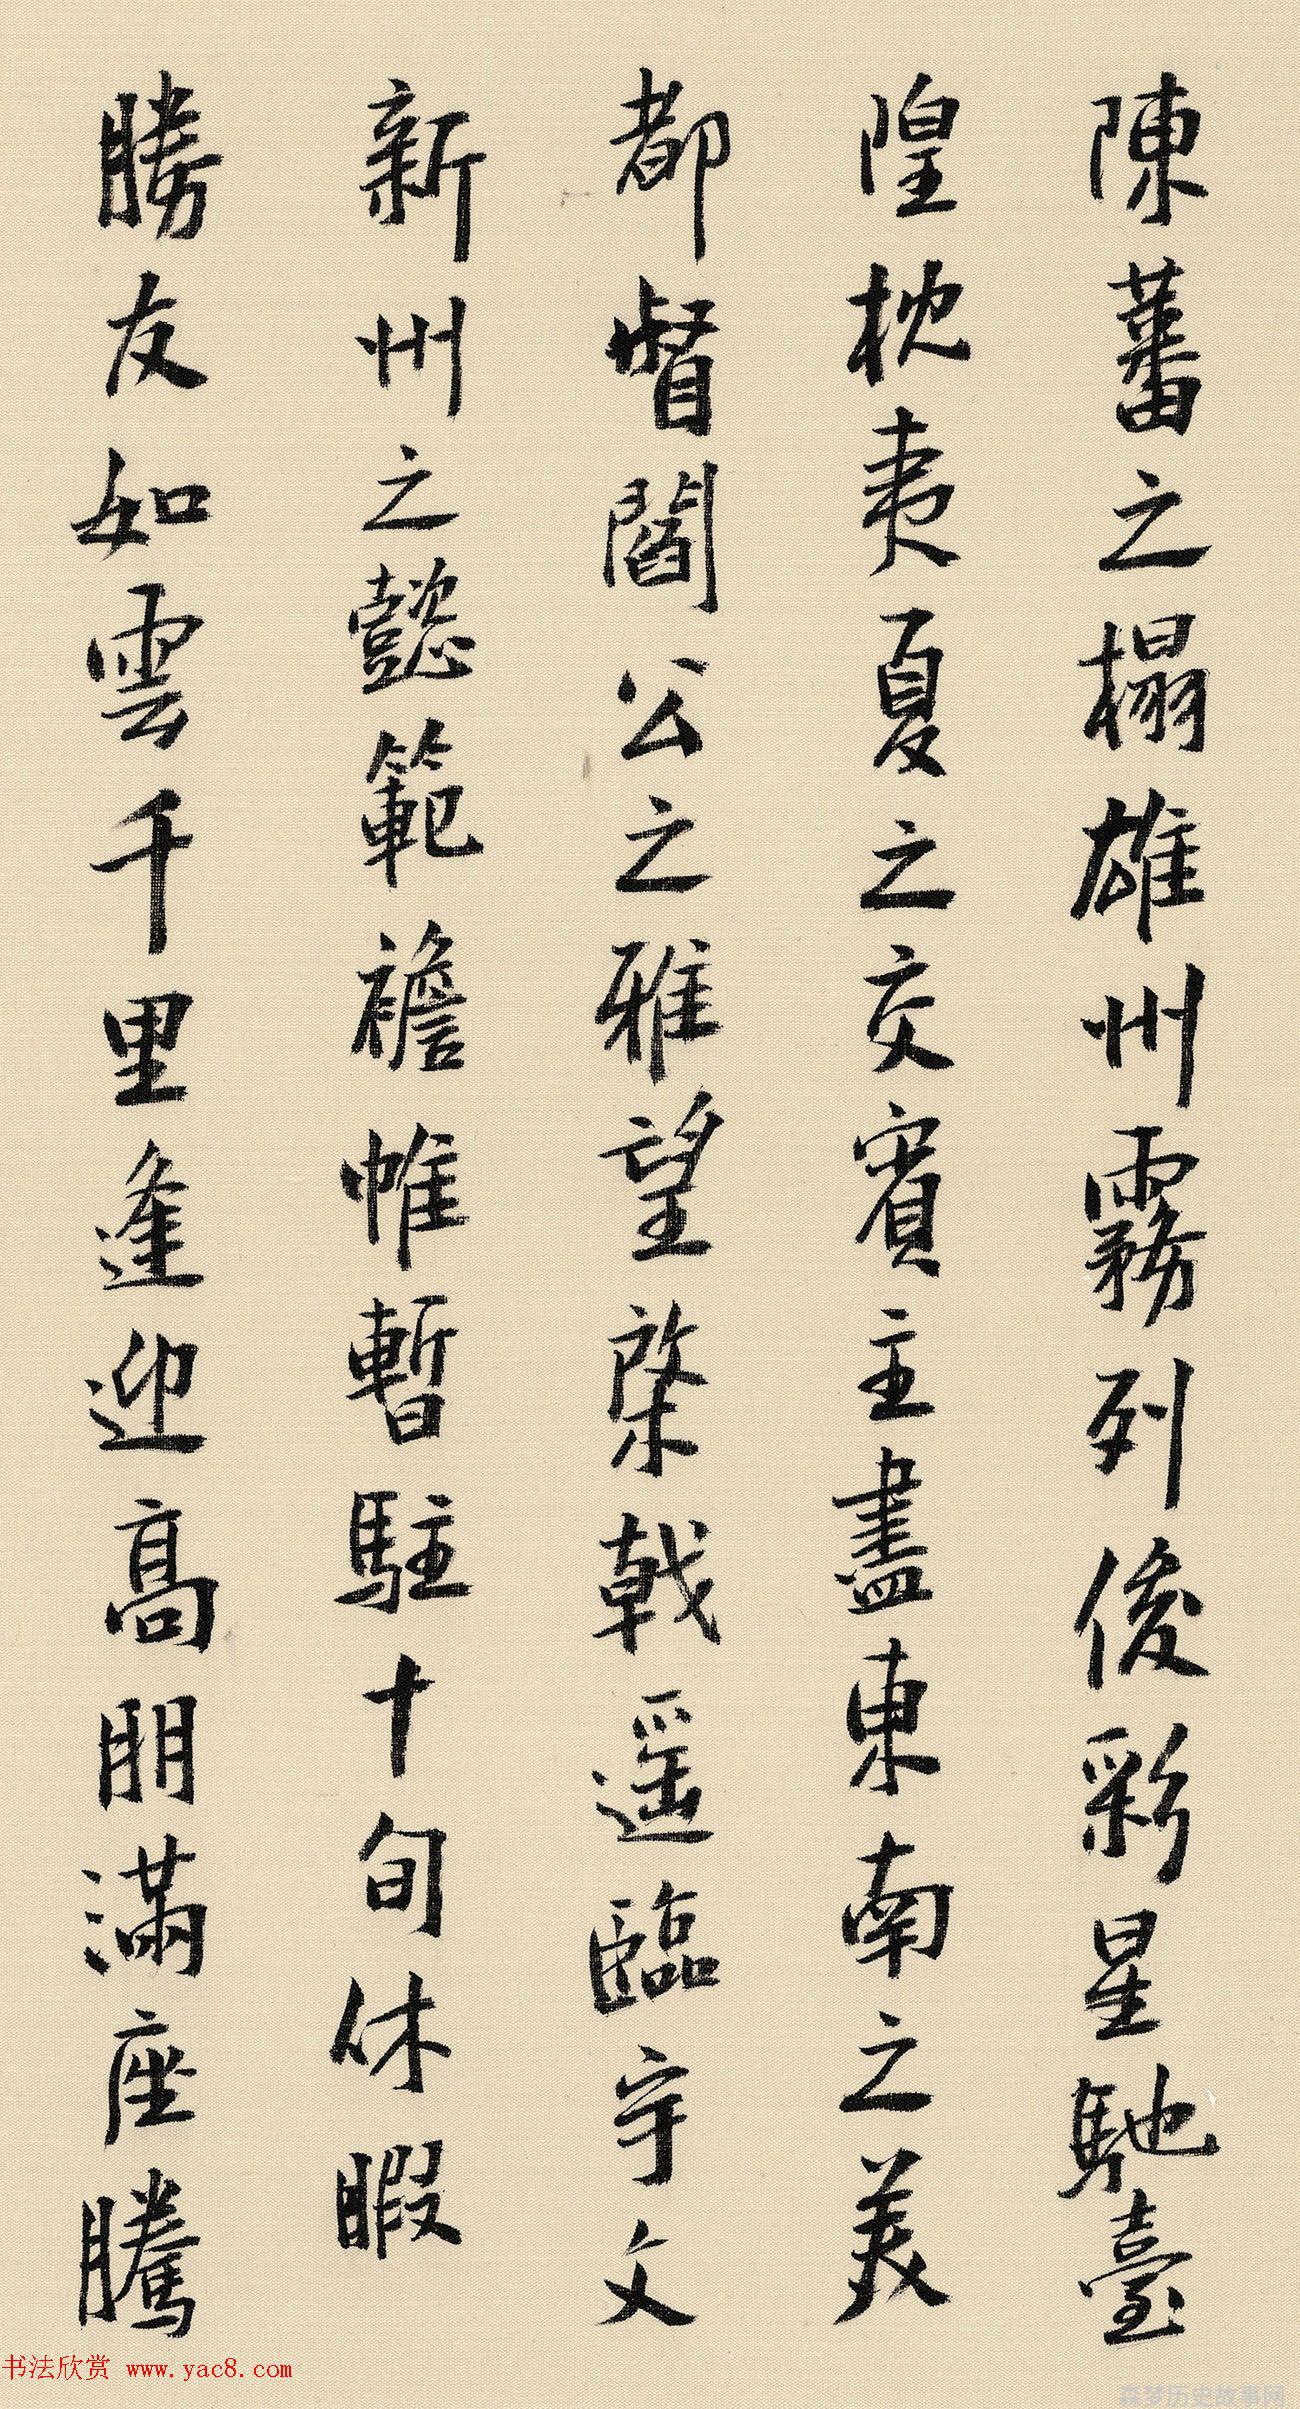 陳蕃之榻雄州霧列俊彩星馳臺
隍枕夷夏之交賓主盡東南之美
都督閻公之雅望棨戟遥臨宇文
新州之懿範襜帷暫駐十旬休暇
勝友如雲千里逢迎高朋滿座騰
书法欣赏 www.yac8.com
森梦历史故事网